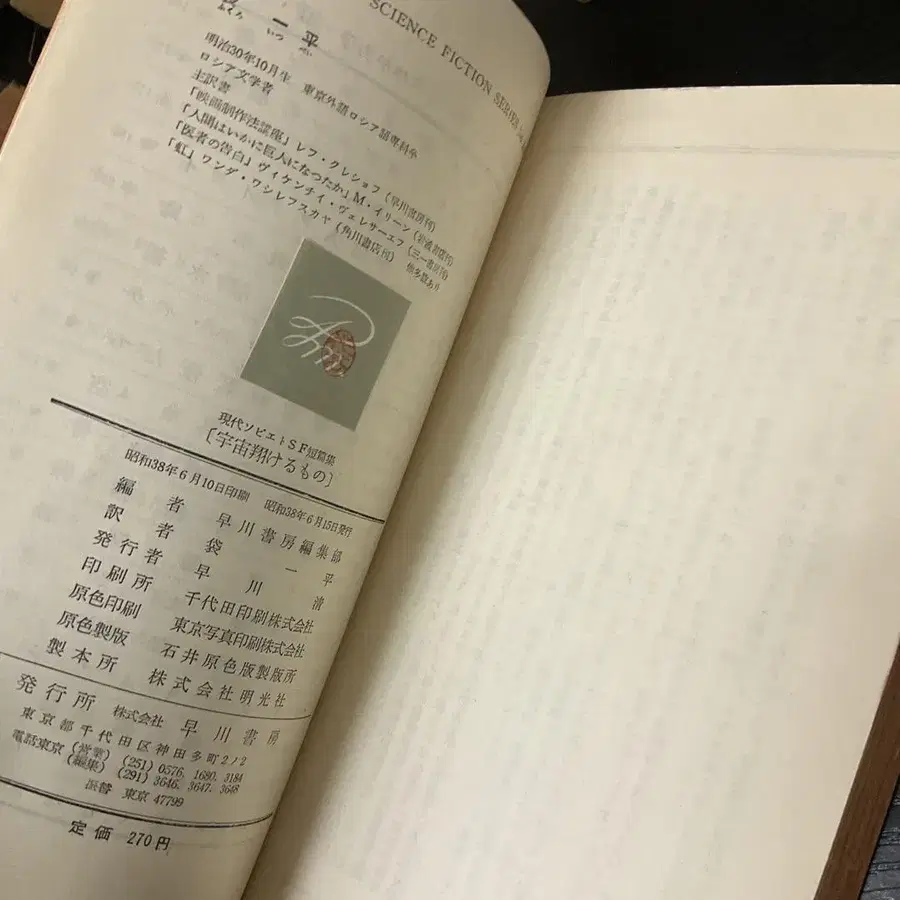 SCIENCE FICTION SERIES
一平
いつ ぺい
明治30年10月生 東京外語ロシア語専科卒
ロシア文学者
主訳書
「映画制作法講座」レフ・クレショフ (早川書房刊)
「人間はいかに巨人になつたか」M・イリーン (岩波書店刊)
「医者の告白」ヴィケンチイ・ヴェレサーエフ (三一書房刊)
「虹」ワンダ・ワシレフスカヤ (角川書店刊) 他多数あり
現代ソビエトSF短篇集
〔宇宙翔けるもの〕
昭和38年6月10日印刷 昭和38年6月15日発行
編者 早川書房編集部
訳者 袋一平
発行者 早川清
印刷所 千代田印刷株式会社
原色印刷 東京写真印刷株式会社
原色製版 石井原色版製版所
製本所 株式会社明光社
発行所 株式会社 早川書房
東京都千代田区神田多町2ノ2
電話東京 (営業) (251) 0576, 1680, 3184
(編集) (291) 3646, 3647, 3648
振替 東京 47799
定価 270円